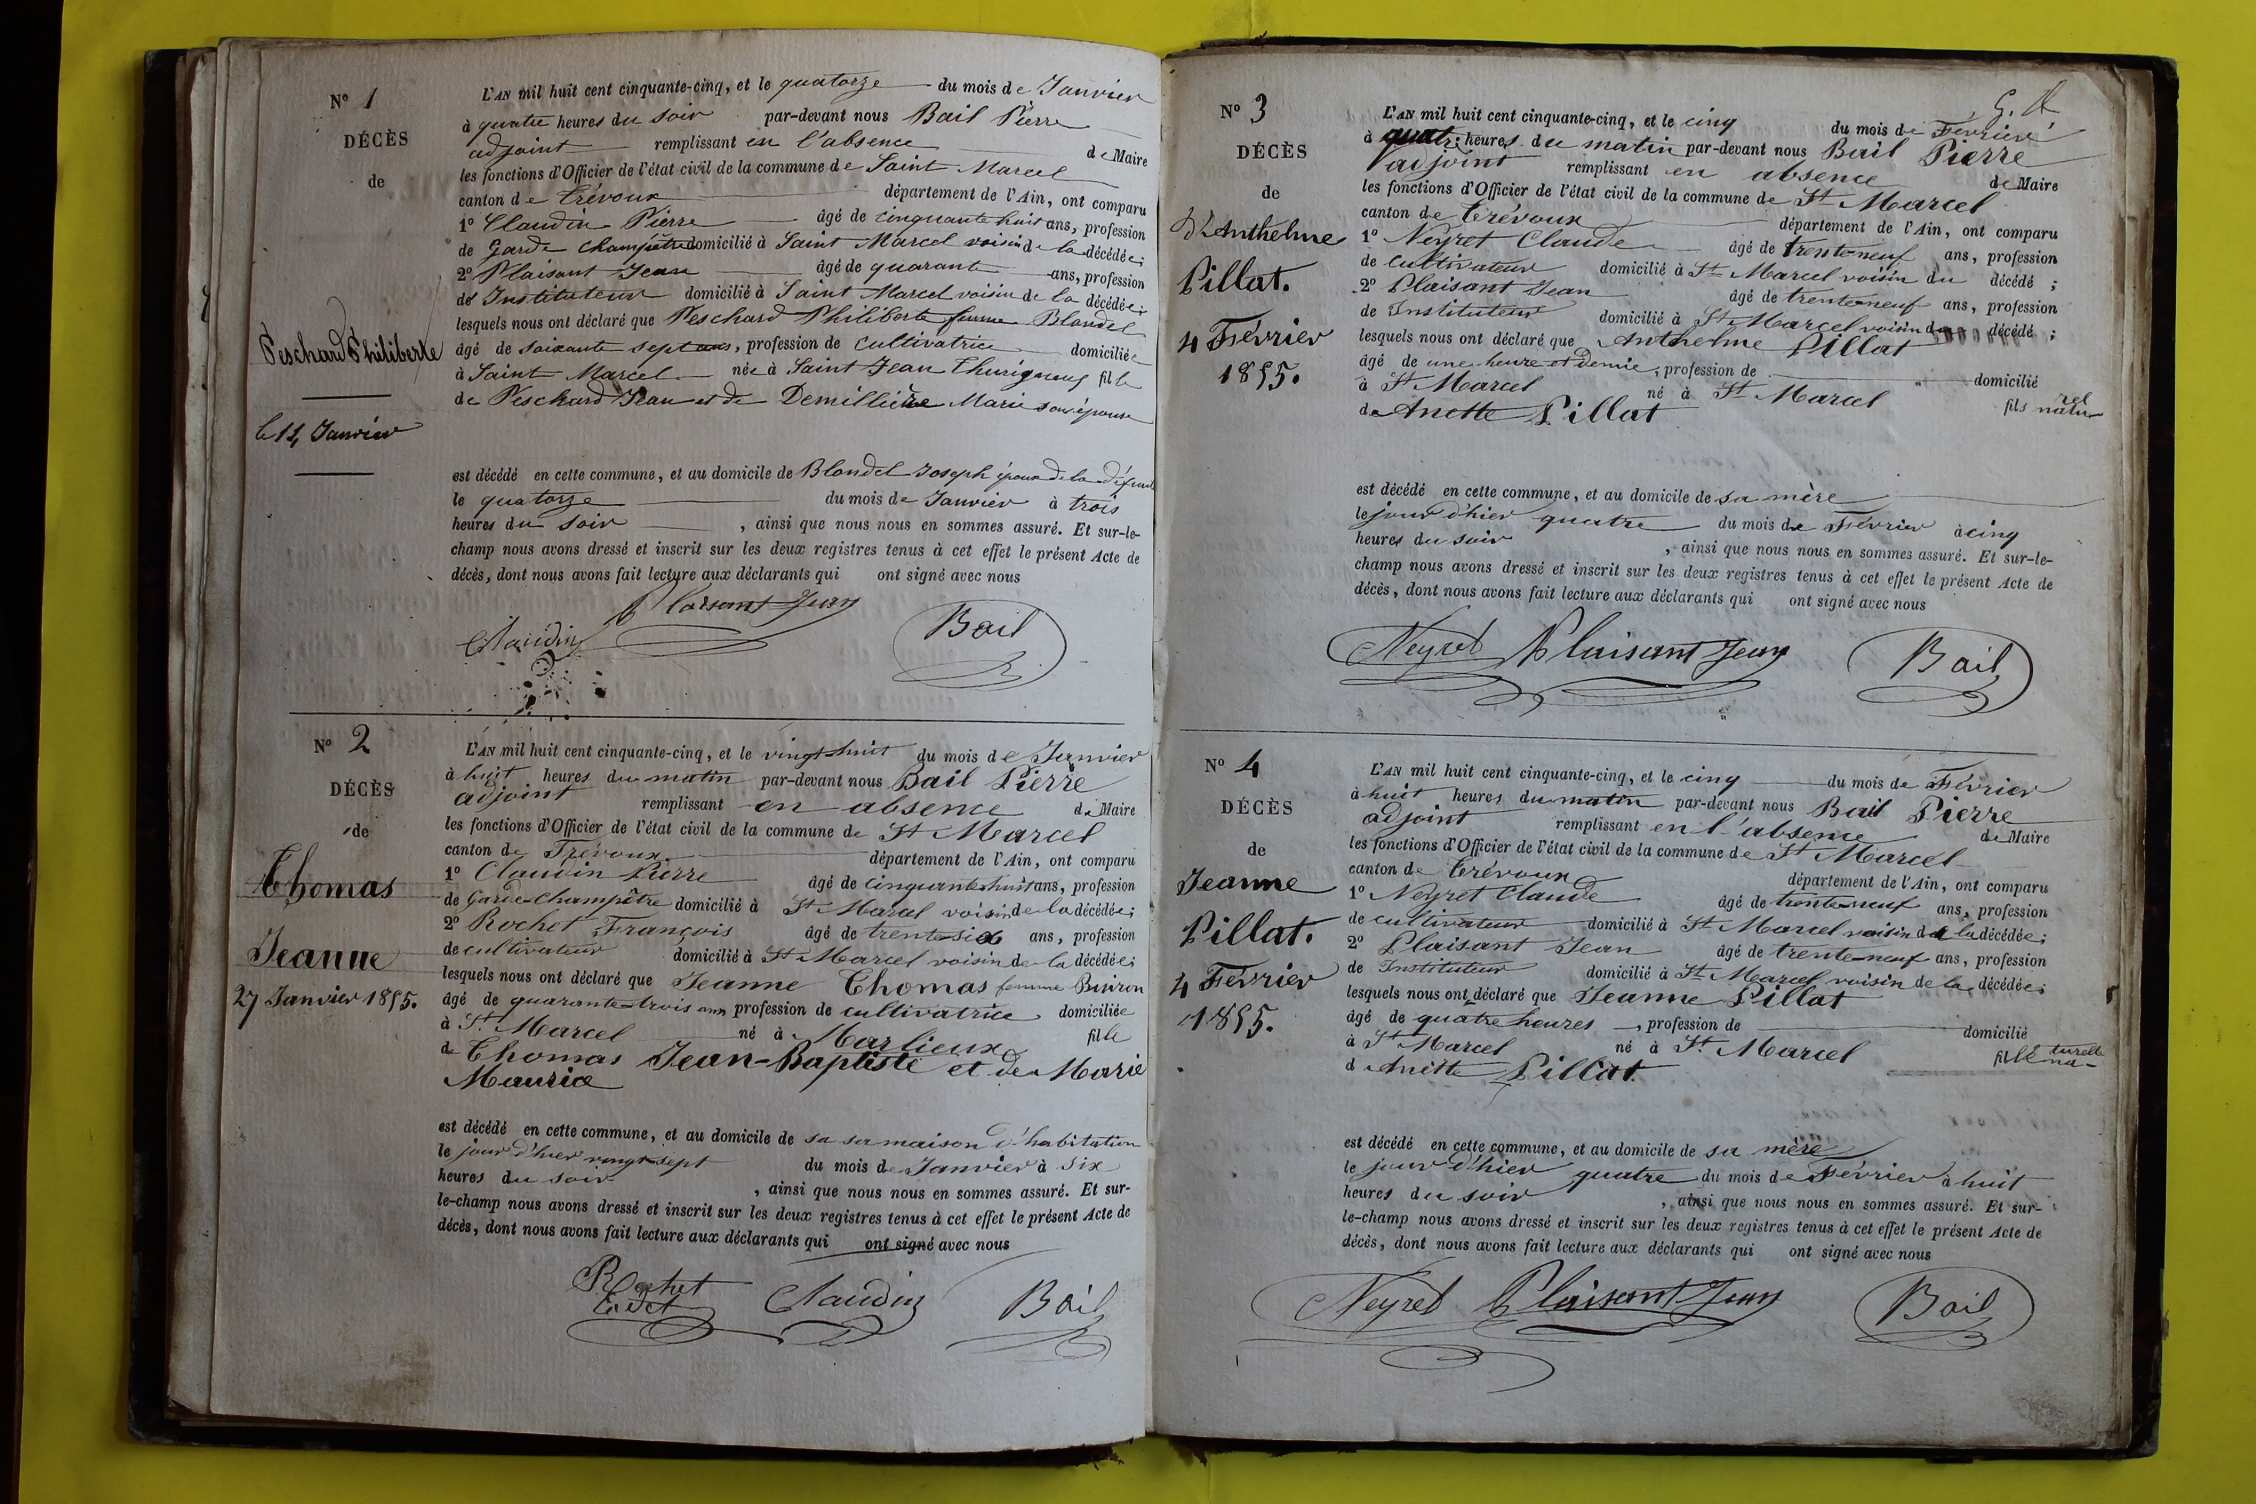 N° 1
DÉCÈS
de
Peschard Philiberte
le 14 Janvier
L'AN mil huit cent cinquante-cinq, et le quatorze du mois de Janvier
à quatre heures du soir par-devant nous Bail Pierre
adjoint remplissant en l'absence de Maire
les fonctions d'Officier de l'état civil de la commune de Saint Marcel
canton de Trévoux département de l'Ain, ont comparu
1° Claudin Pierre âgé de cinquante huit ans, profession
de Garde champêtre domicilié à Saint Marcel voisin de la décédée;
2° Plaisant Jean âgé de quarante ans, profession
de Instituteur domicilié à Saint Marcel voisin de la décédée;
lesquels nous ont déclaré que Peschard Philiberte femme Blondel
âgé de soixante sept ans, profession de cultivatrice domiciliée
à Saint Marcel née à Saint Jean Thurigneux fille
de Peschard Jean et de Demillière Marie son épouse
est décédé en cette commune, et au domicile de Blondel Joseph époux de la défunte
le quatorze du mois de Janvier à trois
heures du soir, ainsi que nous nous en sommes assuré. Et sur-le-
champ nous avons dressé et inscrit sur les deux registres tenus à cet effet le présent Acte de
décès, dont nous avons fait lecture aux déclarants qui ont signé avec nous
Plaisant Jean
Claudin Bail
N° 2
DÉCÈS
de
Thomas
Jeanne
27 Janvier 1855.
L'AN mil huit cent cinquante-cinq, et le vingt-huit du mois de Janvier
à huit heures du matin par-devant nous Bail Pierre
adjoint remplissant en absence de Maire
les fonctions d'Officier de l'état civil de la commune de St Marcel
canton de Trévoux département de l'Ain, ont comparu
1° Claudin Pierre âgé de cinquante huit ans, profession
de Garde-champêtre domicilié à St Marcel voisin de la décédée;
2° Rochet François âgé de trente-six ans, profession
de cultivateur domicilié à St Marcel voisin de la décédée;
lesquels nous ont déclaré que Jeanne Thomas femme Buiron
âgé de quarante-trois ans profession de cultivatrice domiciliée
à St Marcel né à Marlieux fille
de Thomas Jean-Baptiste et de Marie
Maurice
est décédé en cette commune, et au domicile de sa sa maison d'habitation
le jour d'hier vingt-sept du mois de Janvier à six
heures du soir, ainsi que nous nous en sommes assuré. Et sur-
le-champ nous avons dressé et inscrit sur les deux registres tenus à cet effet le présent Acte de
décès, dont nous avons fait lecture aux déclarants qui ont signé avec nous
Rochet Claudin Bail
N° 3
DÉCÈS
de
d'Anthelme
Pillat.
4 Février
1855.
L'AN mil huit cent cinquante-cinq, et le cinq du mois de Février
à quatre heures du matin par-devant nous Bail Pierre
adjoint remplissant en absence de Maire
les fonctions d'Officier de l'état civil de la commune de St Marcel
canton de Trévoux département de l'Ain, ont comparu
1° Neyret Claude âgé de trente-neuf ans, profession
de cultivateur domicilié à St Marcel voisin du décédé;
2° Plaisant Jean âgé de trente-neuf ans, profession
de Instituteur domicilié à St Marcel voisin du décédé;
lesquels nous ont déclaré que Anthelme Pillat
âgé de une heure et demie, profession de domicilié
à St Marcel né à St Marcel fils naturel
de Anette Pillat
est décédé en cette commune, et au domicile de sa mère
le jour d'hier quatre du mois de Février à cinq
heures du soir, ainsi que nous nous en sommes assuré. Et sur-le-
champ nous avons dressé et inscrit sur les deux registres tenus à cet effet le présent Acte de
décès, dont nous avons fait lecture aux déclarants qui ont signé avec nous
Neyret Plaisant Jean Bail
N° 4
DÉCÈS
de
Jeanne
Pillat.
4 Février
1855.
L'AN mil huit cent cinquante-cinq, et le cinq du mois de Février
à huit heures du matin par-devant nous Bail Pierre
adjoint remplissant en l'absence de Maire
les fonctions d'Officier de l'état civil de la commune de St Marcel
canton de Trévoux département de l'Ain, ont comparu
1° Neyret Claude âgé de trente-neuf ans, profession
de cultivateur domicilié à St Marcel voisin de la décédée;
2° Plaisant Jean âgé de trente-neuf ans, profession
de Instituteur domicilié à St Marcel voisin de la décédée;
lesquels nous ont déclaré que Jeanne Pillat
âgé de quatre heures, profession de domicilié
à St Marcel né à St Marcel fille naturelle
d Anette Pillat
est décédé en cette commune, et au domicile de sa mère
le jour d'hier quatre du mois de Février à huit
heures du soir, ainsi que nous nous en sommes assuré. Et sur-
le-champ nous avons dressé et inscrit sur les deux registres tenus à cet effet le présent Acte de
décès, dont nous avons fait lecture aux déclarants qui ont signé avec nous
Neyret Plaisant Jean Bail